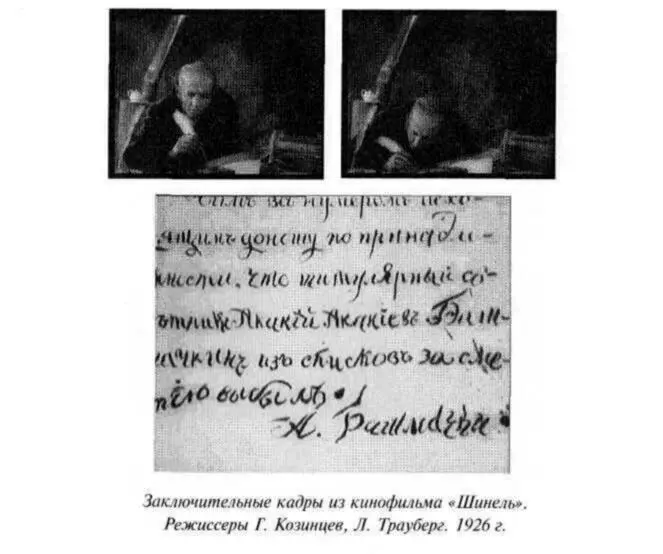 за нумеромъ исхо-
ящимъ донесу по принадле-
жности, что титулярный со-
ѣтникъ Акакій Акакіевъ Баш-
мачкинъ изъ списковъ за сме-
тію выбылъ.
А. Башмачки
Заключительные кадры из кинофильма «Шинель».
Режиссеры Г. Козинцев, Л. Трауберг. 1926 г.